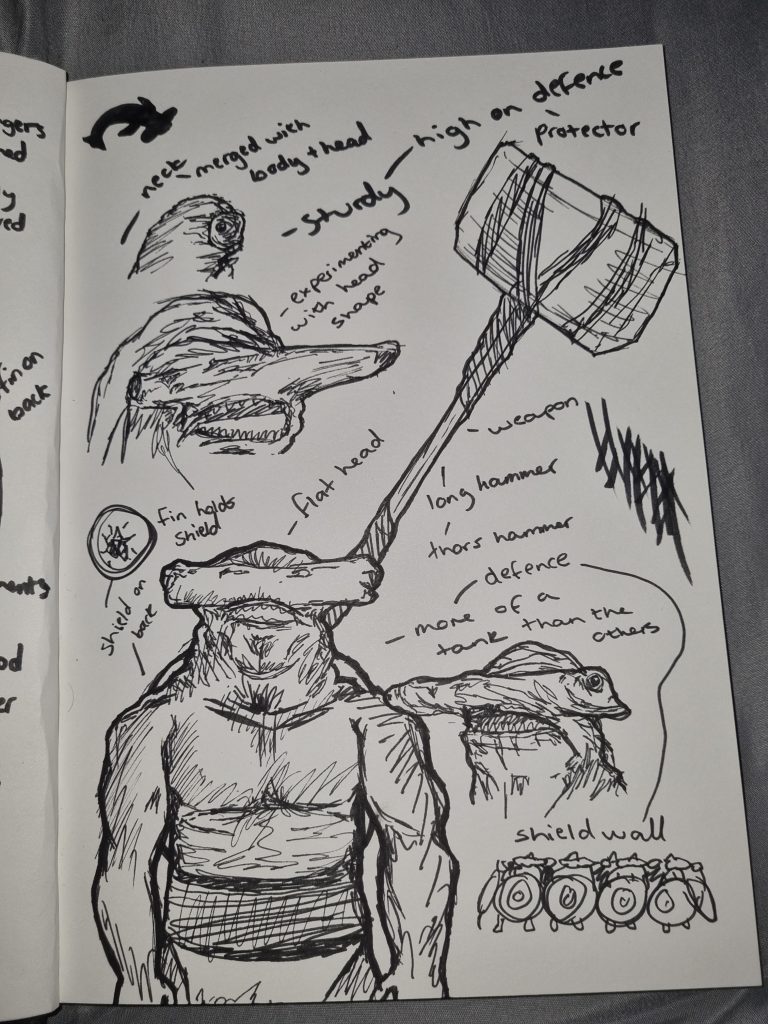 gers
ned
y
red
fin on
back
ments
od
er
neck
merged with
body + head
- sturdy
high on defence
protector
- experimenting
with head
shape
- weapon
long hammer
thors hammer
- flat head
fin holds
shield
shield on
back
defence
- more of a
tank than the
others
shield wall